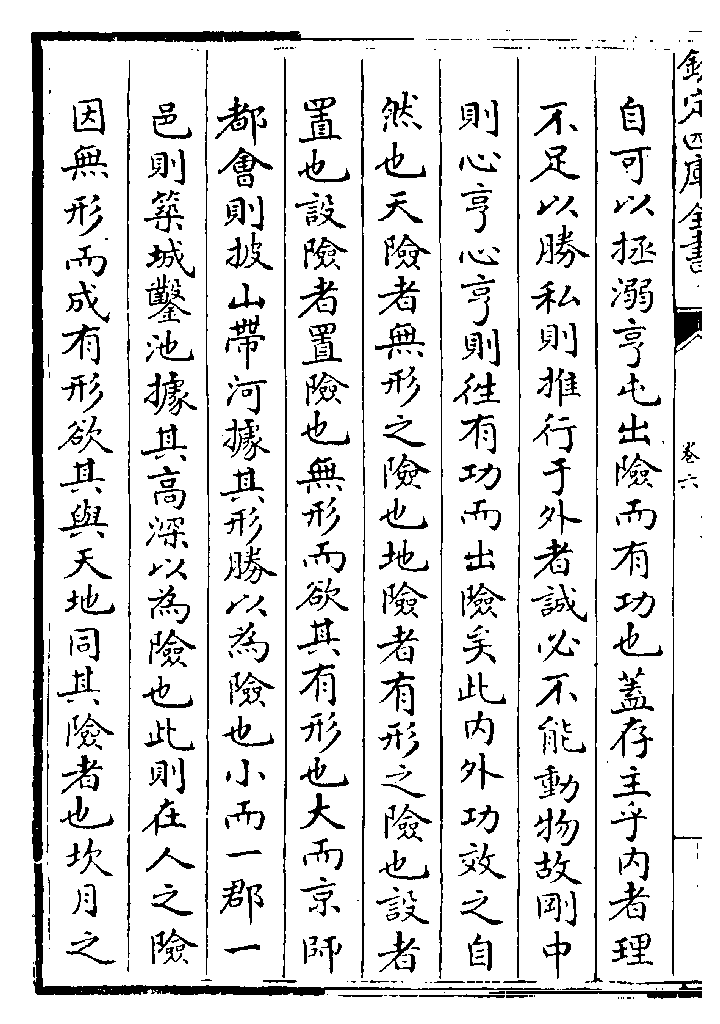 欽定四庫全書
卷六
自可以拯溺亨屯出險而有功也蓋存主乎内者理
不足以勝私則推行于外者誠必不能動物故剛中
則心亨心亨則徃有功而出險矣此内外功效之自
然也天險者無形之險也地險者有形之險也設者
置也設險者置險也無形而欲其有形也大而京師
都會則披山帶河據其形勝以為險也小而一郡一
邑則築城鑿池據其高深以為險也此則在人之險
因無形而成有形欲其與天地同其險者也坎月之